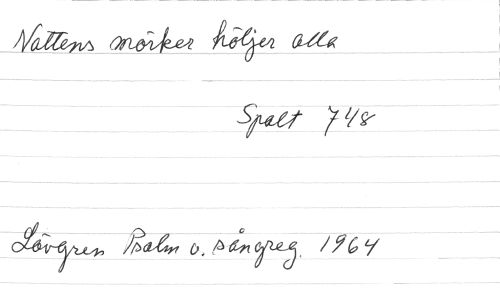 Nattens mörker höljer alla
Spalt 748
Lövgren Psalm o. sångreg. 1964